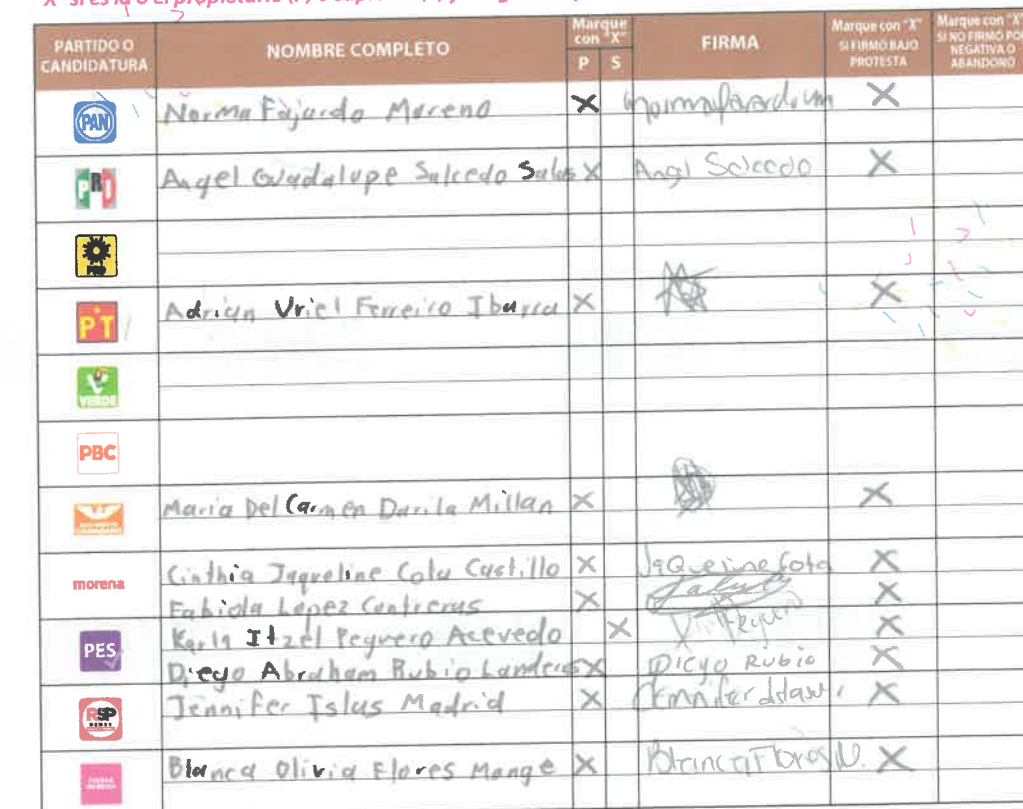 PARTIDO O CANDIDATURA
NOMBRE COMPLETO
Marque con "X"
P S
FIRMA
Marque con "X" SI FIRMÓ BAJO PROTESTA
Marque con "X" SI NO FIRMÓ POR NEGATIVA O ABANDONO
PAN Norma Fajardo Moreno X X
PRI Angel Guadalupe Salcedo Salas X Angl Salcedo X
PRD
PT Adrian Uriel Ferreiro Ibarra X X
VERDE
PBC
Maria Del Carmen Darila Millan X X
morena Cinthia Jaqueline Cota Castillo X Jaqueline Cota X
Fabiola Lopez Contreras X X
PES Karla Itzel Peguero Acevedo X X
Diego Abraham Rubio Landeros X Diego Rubio X
RSP Jennifer Islas Madrid X X
Blanca Olivia Flores Monge X Blanca Flores M. X